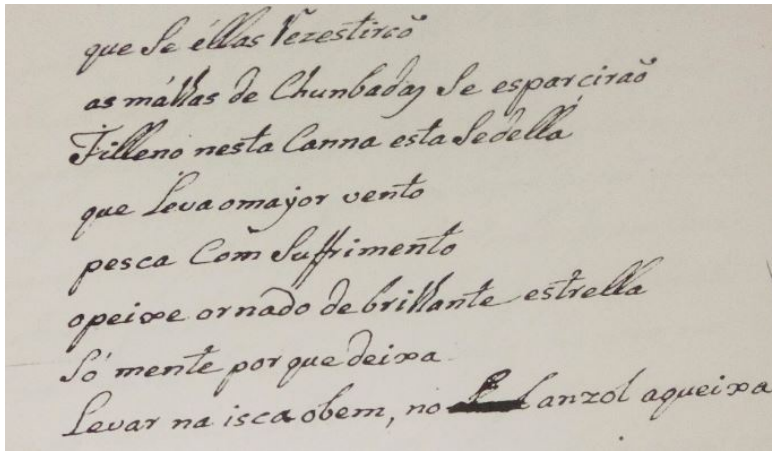 que Se éllas Rezestiraõ
as mállas de Chunbadas Se esparciraõ
Filleno nesta Canna esta Sedella
que Leva omajor vento
pesca Com Suffrimento
opeixe ornado de brillante estrella
Só mente por que deixa
Levar na isca obem, no anzol aqueixa